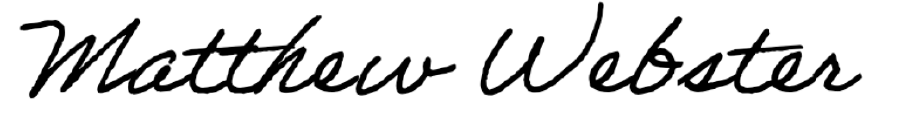 Matthew Webster